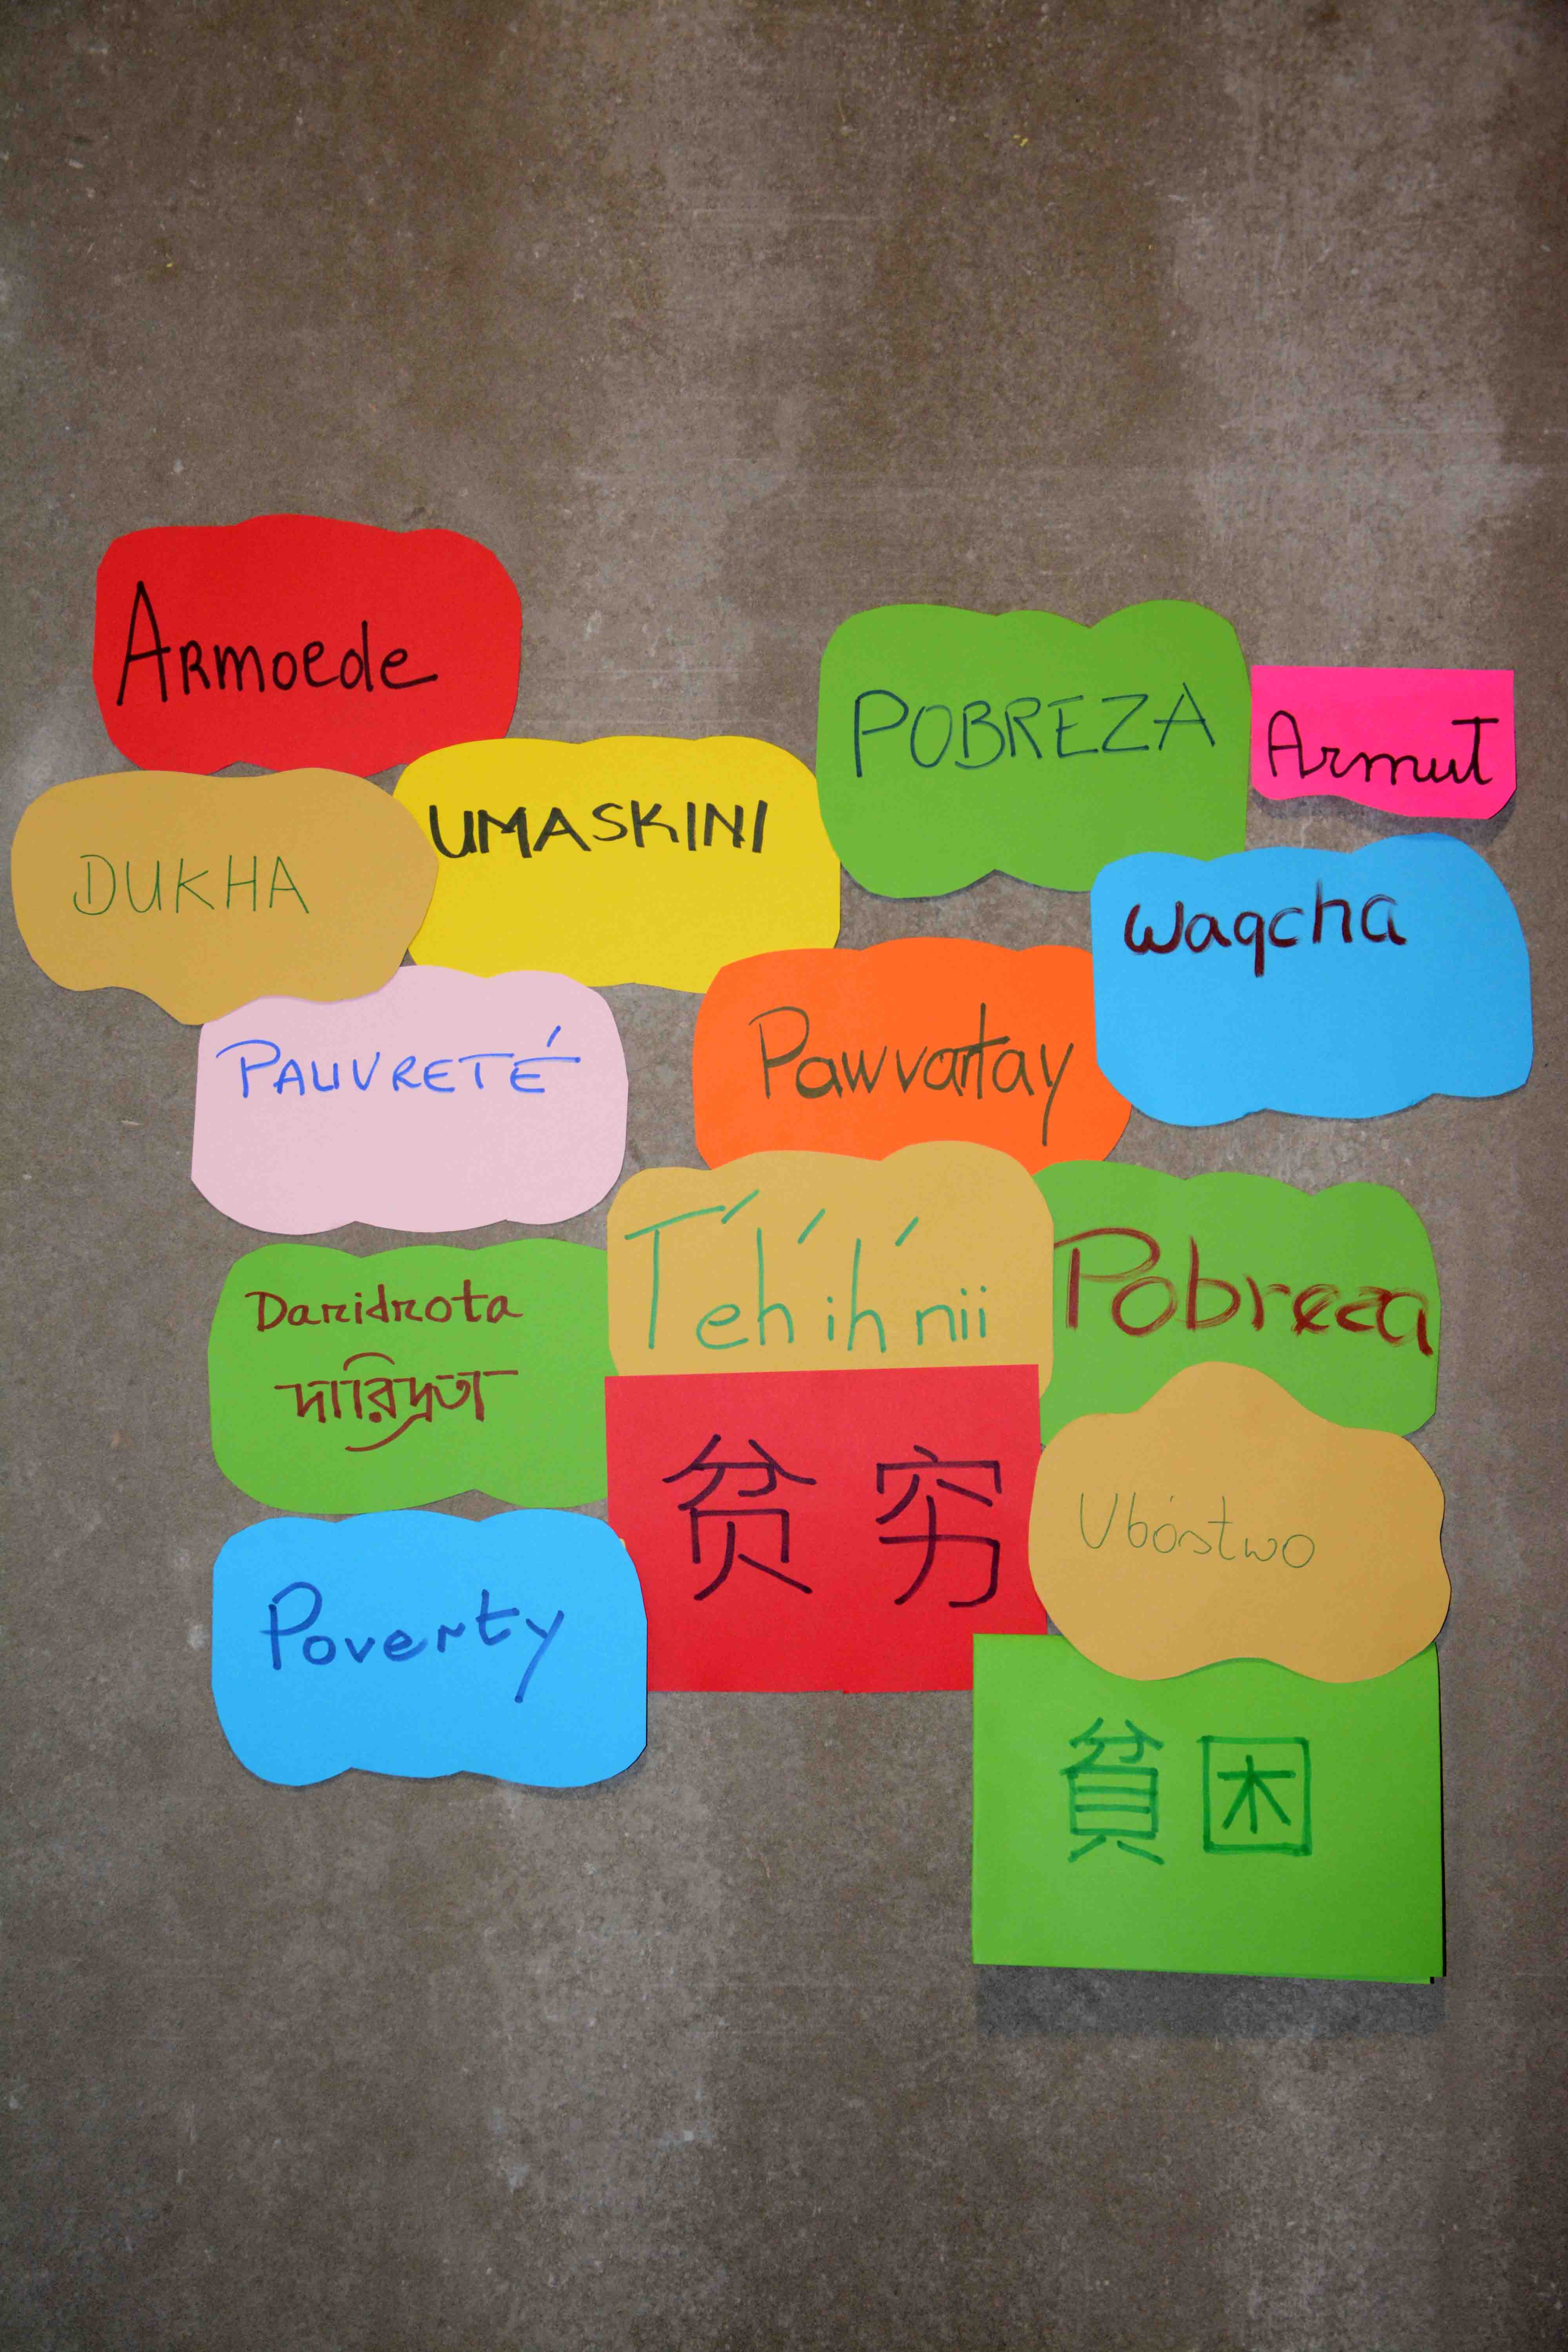 Armoede
POBREZA
Armut
UMASKINI
DUKHA
Waqcha
PAUVRETÉ
Pawvartay
T'eh'ih'nii
Pobreza
Daridrota
দারিদ্রতা
贫穷
Ubóstwo
Poverty
貧困